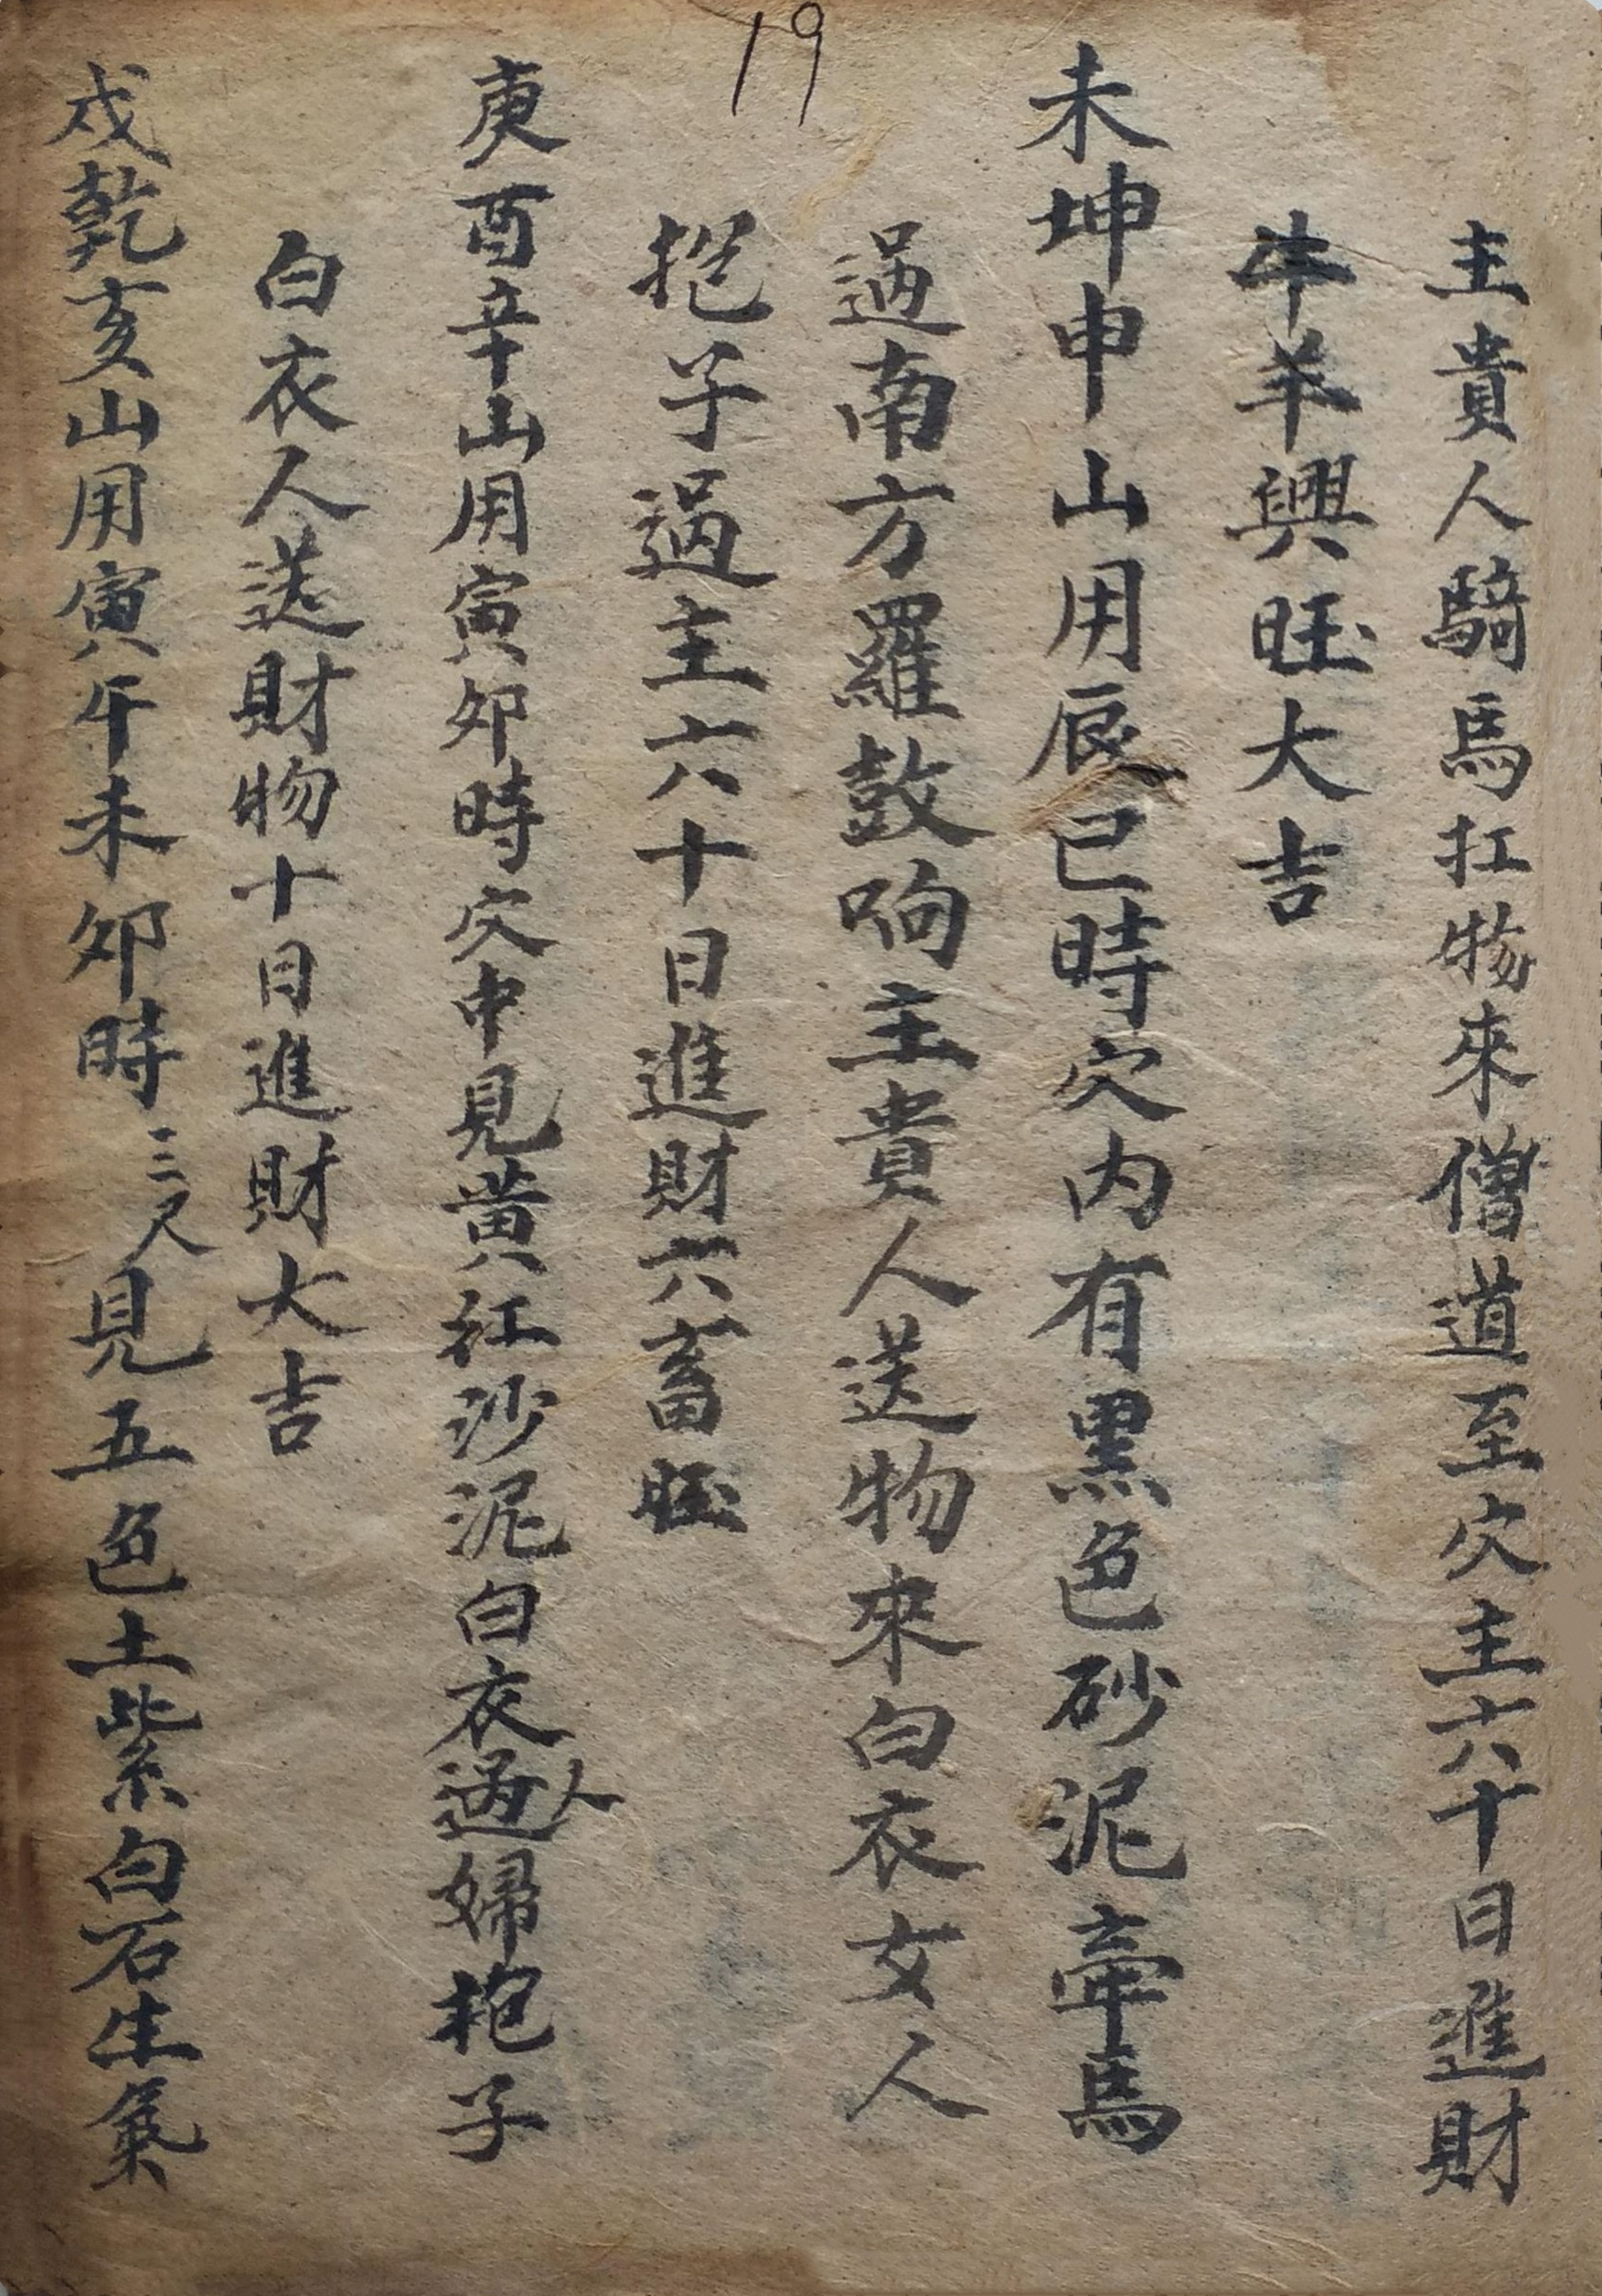 19
主貴人騎馬扛物來僧道至穴主六十日進財
牛羊興旺大吉
未坤申山用辰巳時穴内有黑色砂泥牽馬
過南方羅鼓响主貴人送物來白衣女人
抱子過主六十日進財六畜旺
庚酉辛山用寅卯時穴中見黃紅沙泥白衣人過婦抱子
白衣人送財物十日進財大吉
戌乾亥山用寅午未卯時三尺見五色土紫白石生氣